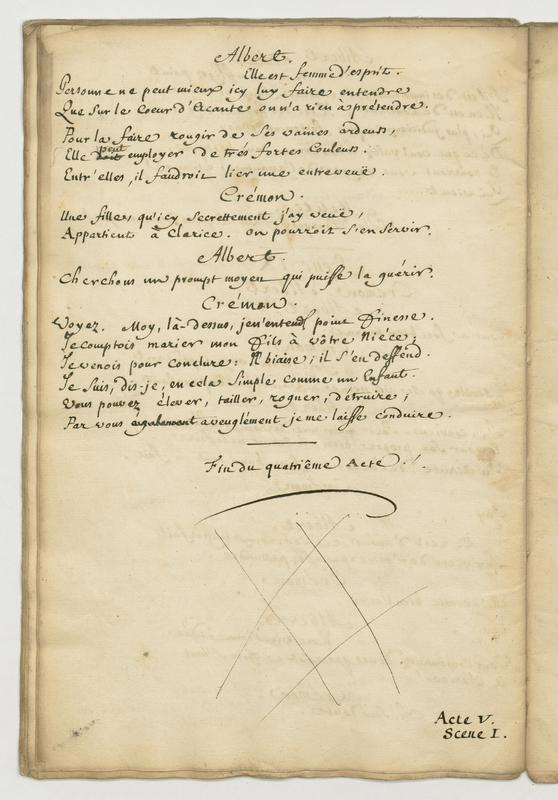 Albert.
Elle est femme d'esprit.
Personne ne peut mieux icy luy faire entendre
Que sur le Coeur d'Ercante on n'a rien à prétendre.
Pour la faire rougir de ses vaines ardeurs,
peut
Elle doit employer de trés fortes Couleurs.
Entr'elles, il faudroit lier une entreveuë.
Crémon.
Une fille, qu'icy secrettement j'ay veuë,
Appartient à Clarice. On pourroit s'en servir.
Albert.
Cherchons un prompt moyen qui puisse la guérir.
Crémon.
Voyez. Moy, là-dessus, je n'entends point finesse.
Je comptois marier mon Fils à vôtre Niéce;
Je venois pour conclure: Il biaise; il s'en deffend.
Je suis, dis-je, en cela simple comme un Enfant.
Vous pouvez élever, tailler, rogner, détruire;
Par vous aveuglément je me laisse conduire.
Fin du quatriême Acte.
Acte V.
Scene I.